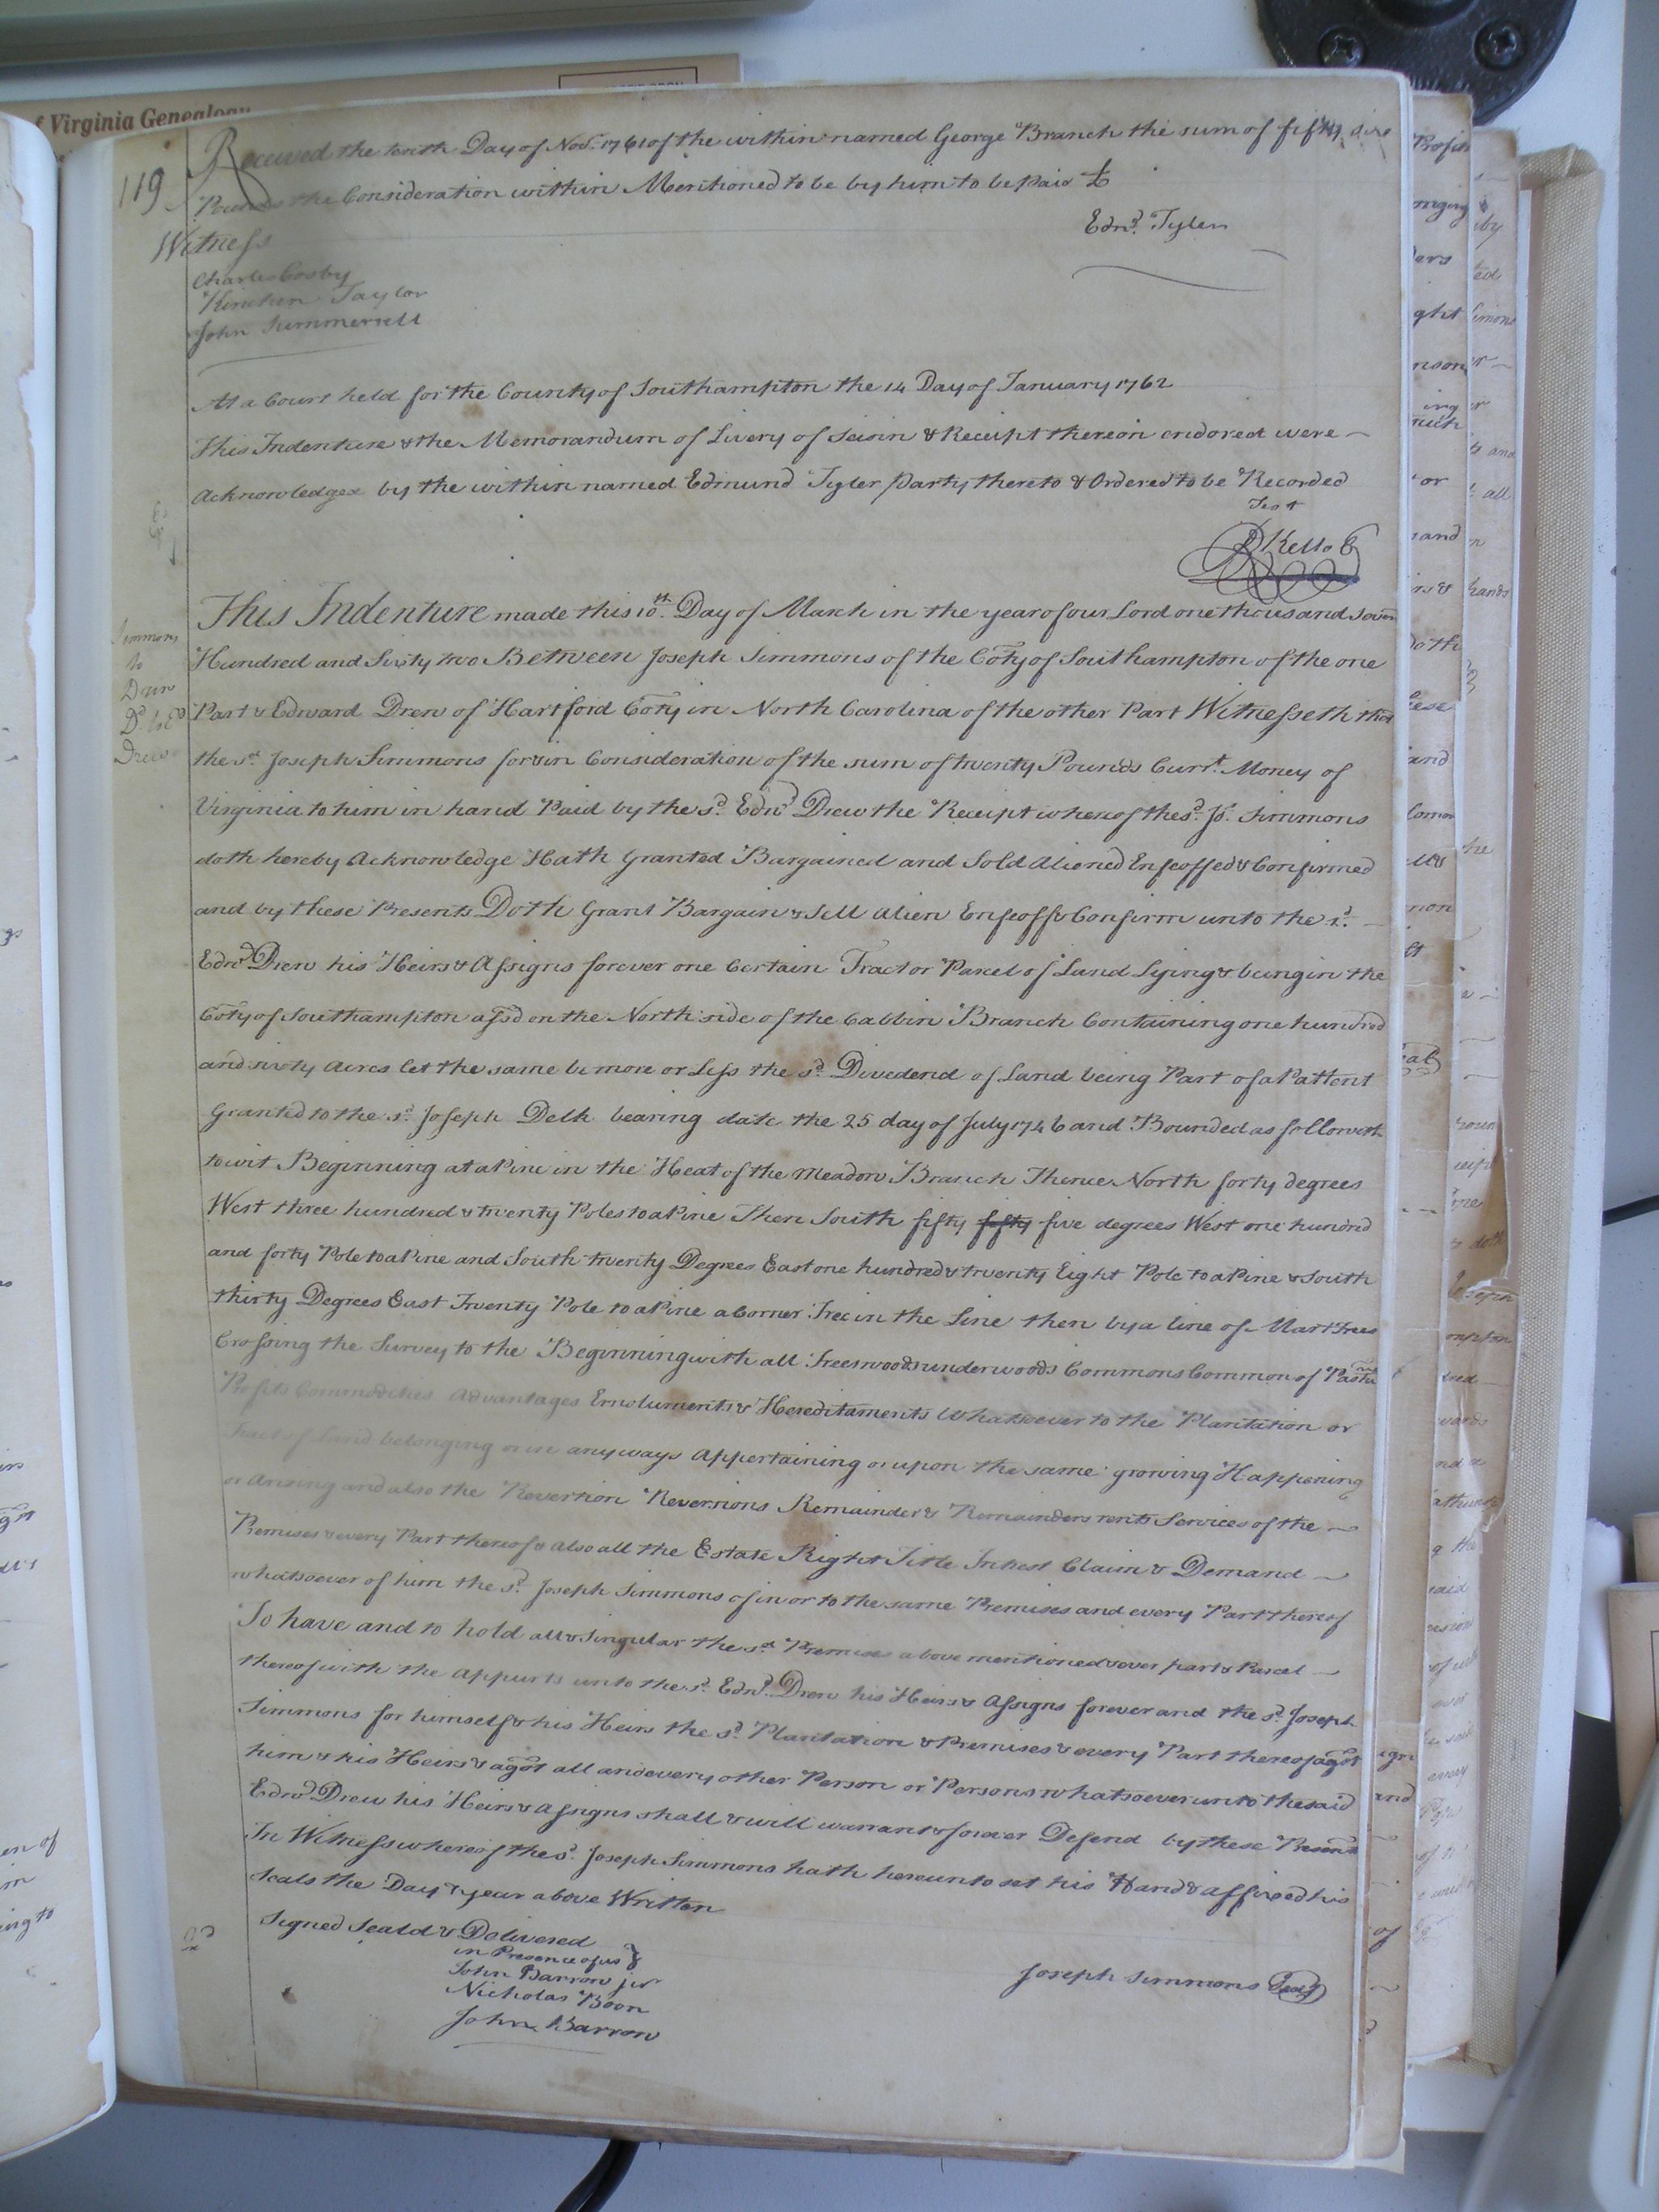 f Virginia Genealogy
119
Received the tenth Day of Novr. 1761 of the within named George Branch the sum of fifty five
Pounds the Consideration within Mentioned to be by him to be Paid £
Edmd. Tyler
Witness
Charles Cosby
Kinchen Taylor
John Summerell
At a Court held for the County of Southampton the 14 Day of January 1762
This Indenture & the Memorandum of Livery of Seisin & Receipt thereon endored were
Acknowledged by the within named Edmund Tyler party thereto & Ordered to be Recorded
Test
R Kello C
Simmons
to
Drew
Dd. to Ed
Drew
This Indenture made this 10th. Day of March in the year of our Lord one thousand Seven
Hundred and Sixty two Between Joseph Simmons of the Coty of Southampton of the one
Part & Edward Drew of Hartford Coty in North Carolina of the other Part Witnesseth that
the sd. Joseph Simmons for & in Consideration of the sum of twenty Pounds Currt. Money of
Virginia to him in hand Paid by the sd. Edwd Drew the Receipt whereof the sd. Js. Simmons
doth hereby Acknowledge Hath Granted Bargained and Sold Aliened Enfeoffed & Confirmed
and by these Presents Doth Grant Bargain & Sell Alien Enfeoff & Confirm unto the sd.
Edwd Drew his Heirs & Assigns forever one Certain Tract or Parcel of Land Lying & being in the
Coty of Southampton afsd on the North side of the Cabbin Branch Containing one hundred
and sixty Acres let the same be more or Less the sd. Divedend of Land being Part of a Pattent
Granted to the sd. Joseph Delk bearing date the 25 day of July 1746 and Bounded as followeth
to wit Beginning at a Pine in the Heat of the Meadow Branch Thence North forty degrees
West three hundred & twenty Poles to a Pine Then South fifty fifty five degrees West one hundred
and forty Pole to a Pine and South twenty Degrees East one hundred & twenty Eight Pole to a Pine & South
thirty Degrees East Twenty Pole to a Pine a Corner Tree in the Line then by a line of Mart Trees
Crossing the Survey to the Beginning with all Trees woods underwoods Commons Common of Pastu
Profits Commodities Advantages Emoluments & Hereditaments Whatsoever to the Plantation or
Tract of Land belonging or in any ways Appertaining or upon the same growing Happening
or Arising and also the Revertion Revernions Remainder & Remainders rents Services of the
Premises & every Part thereof & also all the Estate Right Title Intrest Claim & Demand
whatsoever of him the sd. Joseph Simmons of in or to the same Premises and every Part thereof
To have and to hold all & Singular the sd Premises above mentioned & ever part & Parcel
thereof with the Appurts unto the sd. Edwd. Drew his Heirs & Assigns forever and the sd. Joseph
Simmons for himself & his Heirs the sd Plantation & Premises & every Part thereof agst
him & his Heirs & agst all and every other Person or Persons whatsoever unto the said
Edwd Drew his Heirs & Assigns shall & will warrant & forever Defend by these Presents
In Witness whereof the sd. Joseph Simmons hath hereunto set his Hand & affixed his
Seals the Day & year above Written
Signed Seald & Delivered
in Presence of us
John Barrow jur
Nicholas Boon
John Barrow
Joseph Simmons Seal